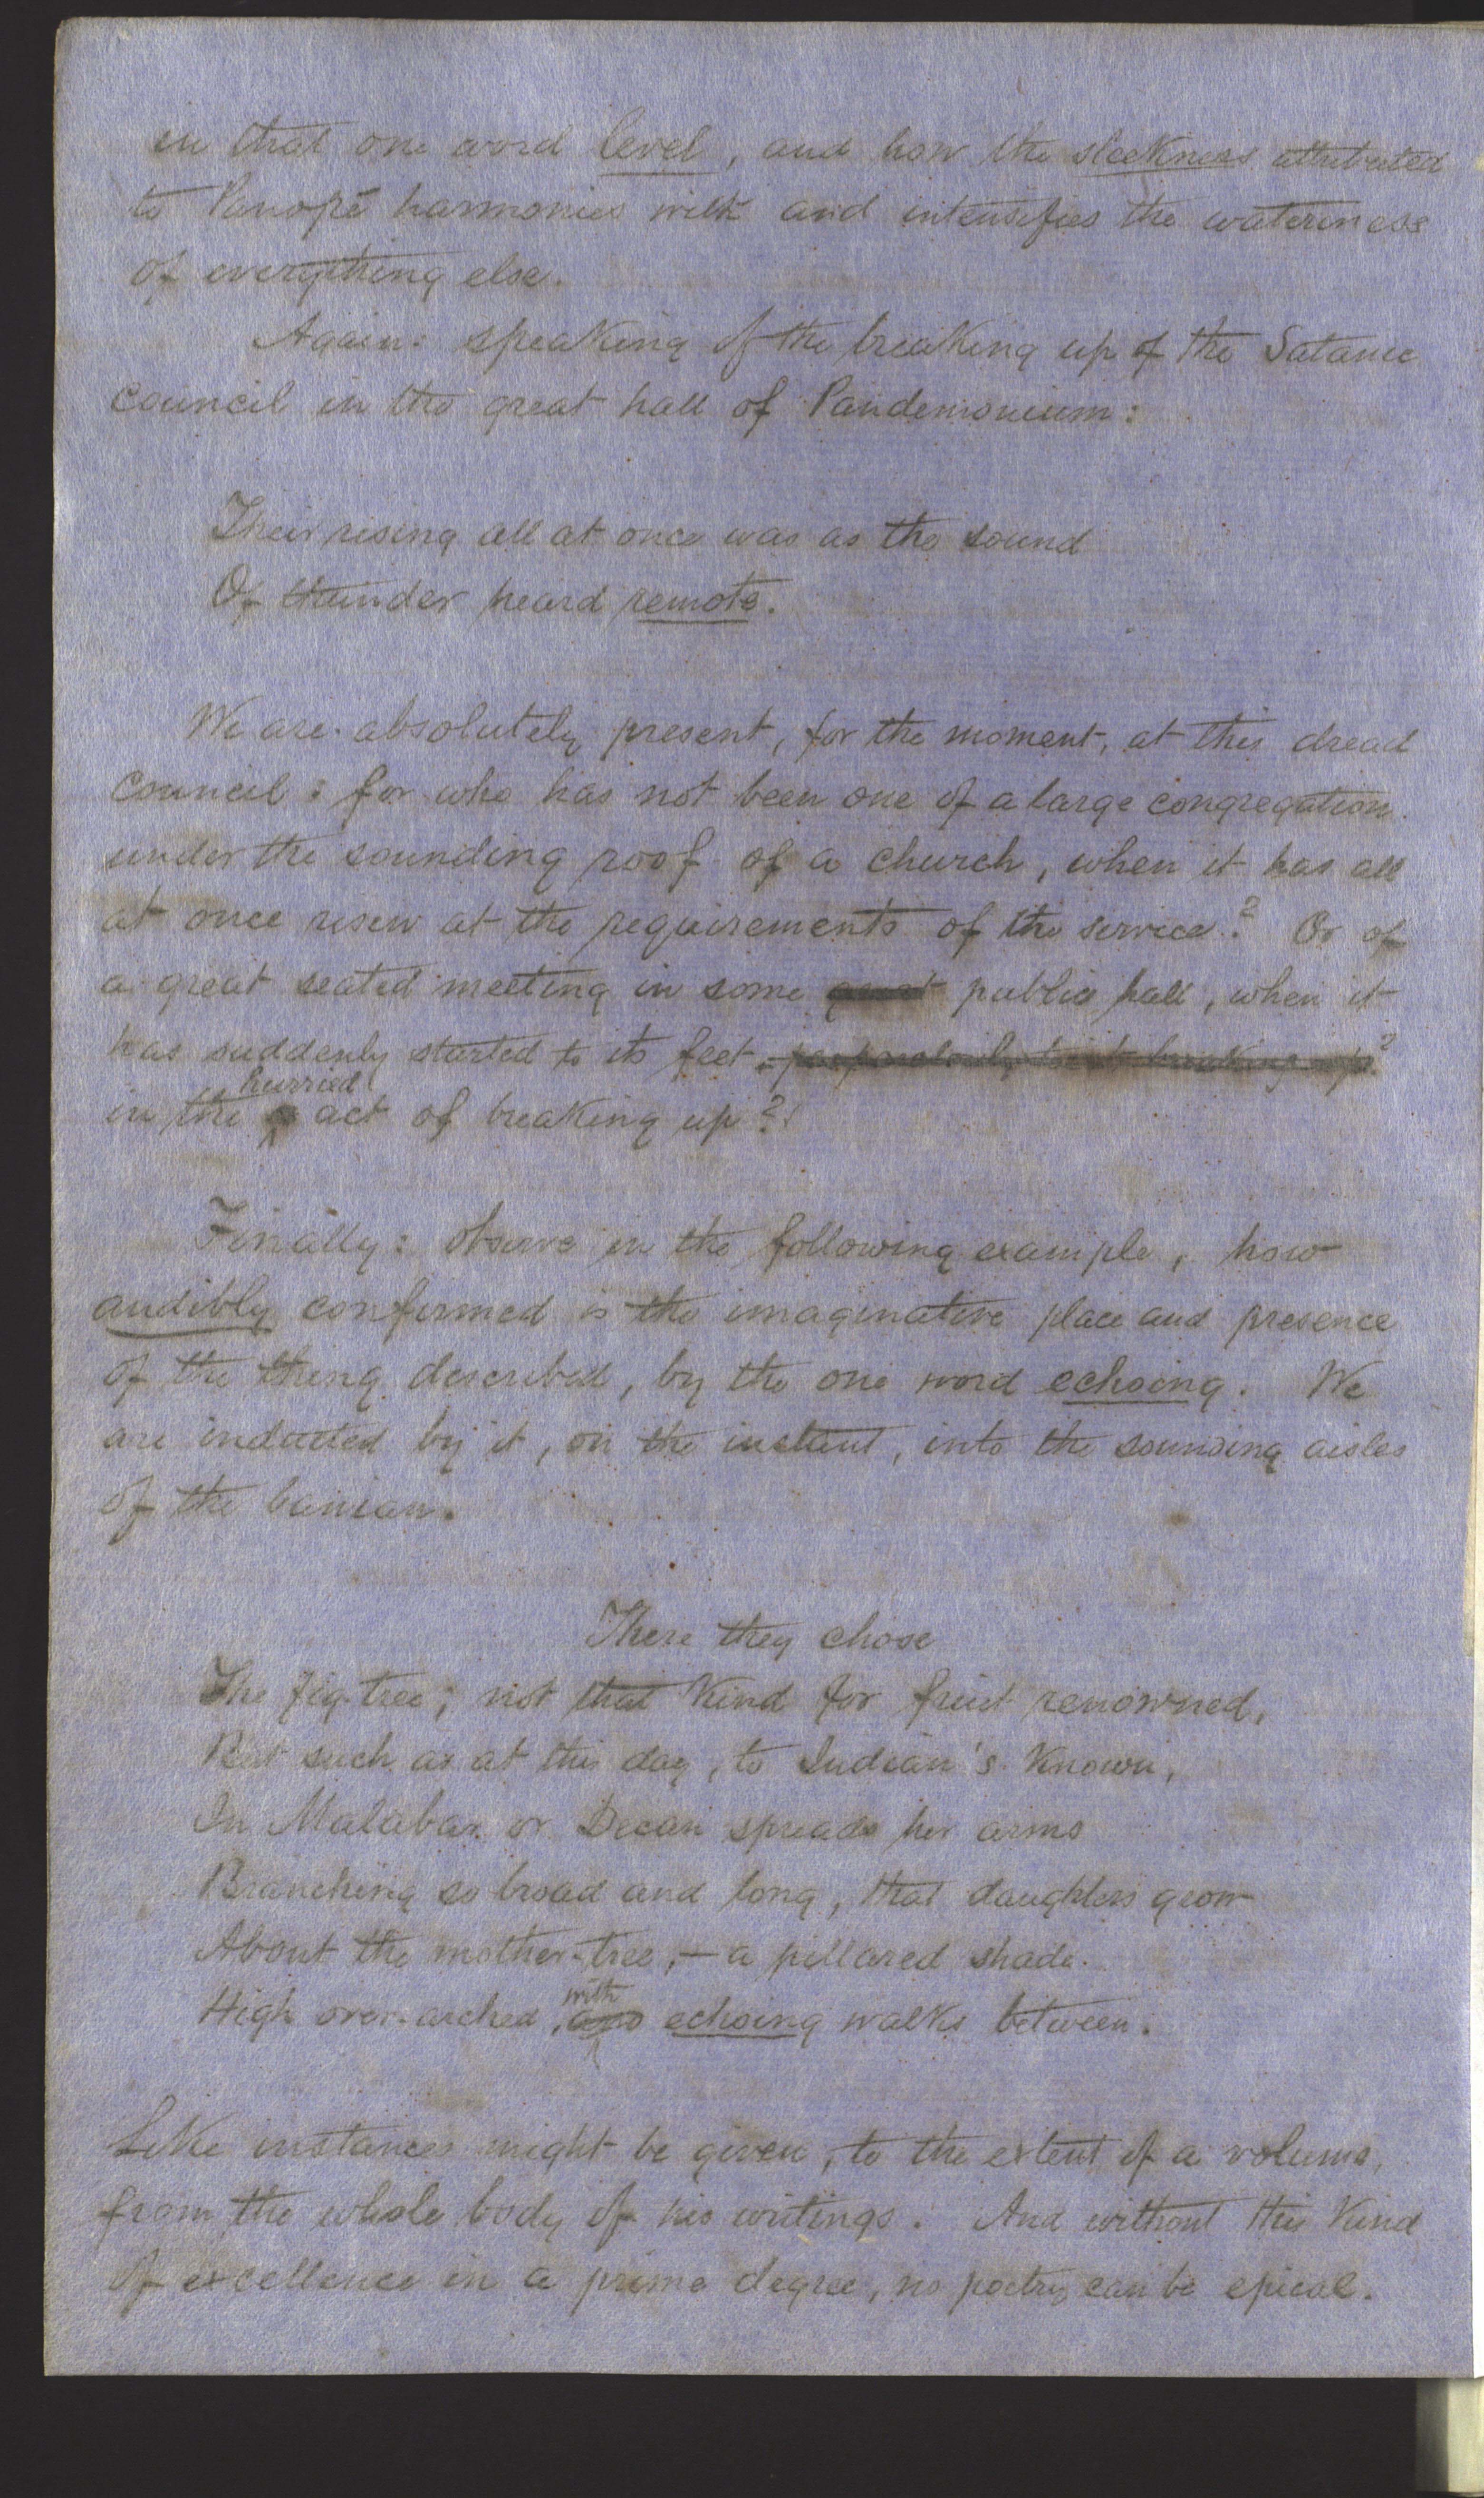 in that one word level, and how the sleekness attributed
to Panopé harmonies with and intensifies the wateriness
of everything else.
Again: speaking of the breaking up of the Satanic
council in the great hall of Pandemonium:
Their rising all at once was as the sound
Of thunder heard remote.
We are absolutely present, for the moment, at this dread
council: for who has not been one of a large congregation
under the sounding roof of a church, when it has all
at once risen at the requirements of the service? Or of
a great seated meeting in some great public hall, when it
has suddenly started to its feet
in the hurried act of breaking up?
Finally: observe in the following example, how
audibly confirmed is the imaginative place and presence
of the thing described, by the one word echoing. We
are inducted by it, on the instant, into the sounding aisles
of the banian.
There they chose
The fig-tree; not that kind for fruit renowned,
But such as at this day, to Indian's known,
In Malabar or Decan spreads her arms
Branching so broad and long, that daughters grow
About the mother-tree,— a pillared shade
High over-arched, and with echoing walks between.
Like instances might be given, to the extent of a volume,
from the whole body of his writings. And without this kind
of excellence in a prime degree, no poetry can be epical.